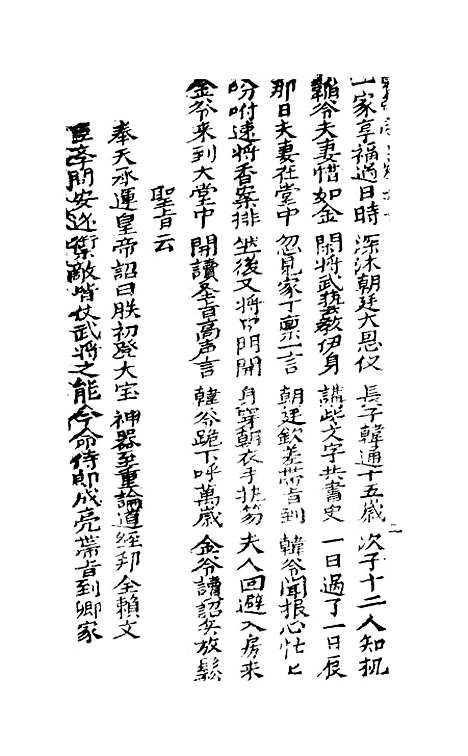 一家享福過日時 深沐朝廷大恩仪 長子韓通十五歲 次子十二人知机
韓爷夫妻惜如金 閑將武藝教伊身 講些文字共書史 一日過了一日辰
那日夫妻在堂中 忽見家丁稟一言 朝廷欽差帶旨到 韓爷聞报心忙忙
吩咐速將香案排 然後又將中門開 身穿朝衣手执笏 夫人回避入房来
金爷来到大堂中 開讀圣旨高声言 韓爷跪下呼萬歲 金爷讀詔矣放鬆
聖旨云
奉天承運皇帝詔曰朕初登大宝神器至重論道經邦全賴文
臣奉閂安逐禦敵皆仗武將之能今命侍郎成亮帶旨到卿家